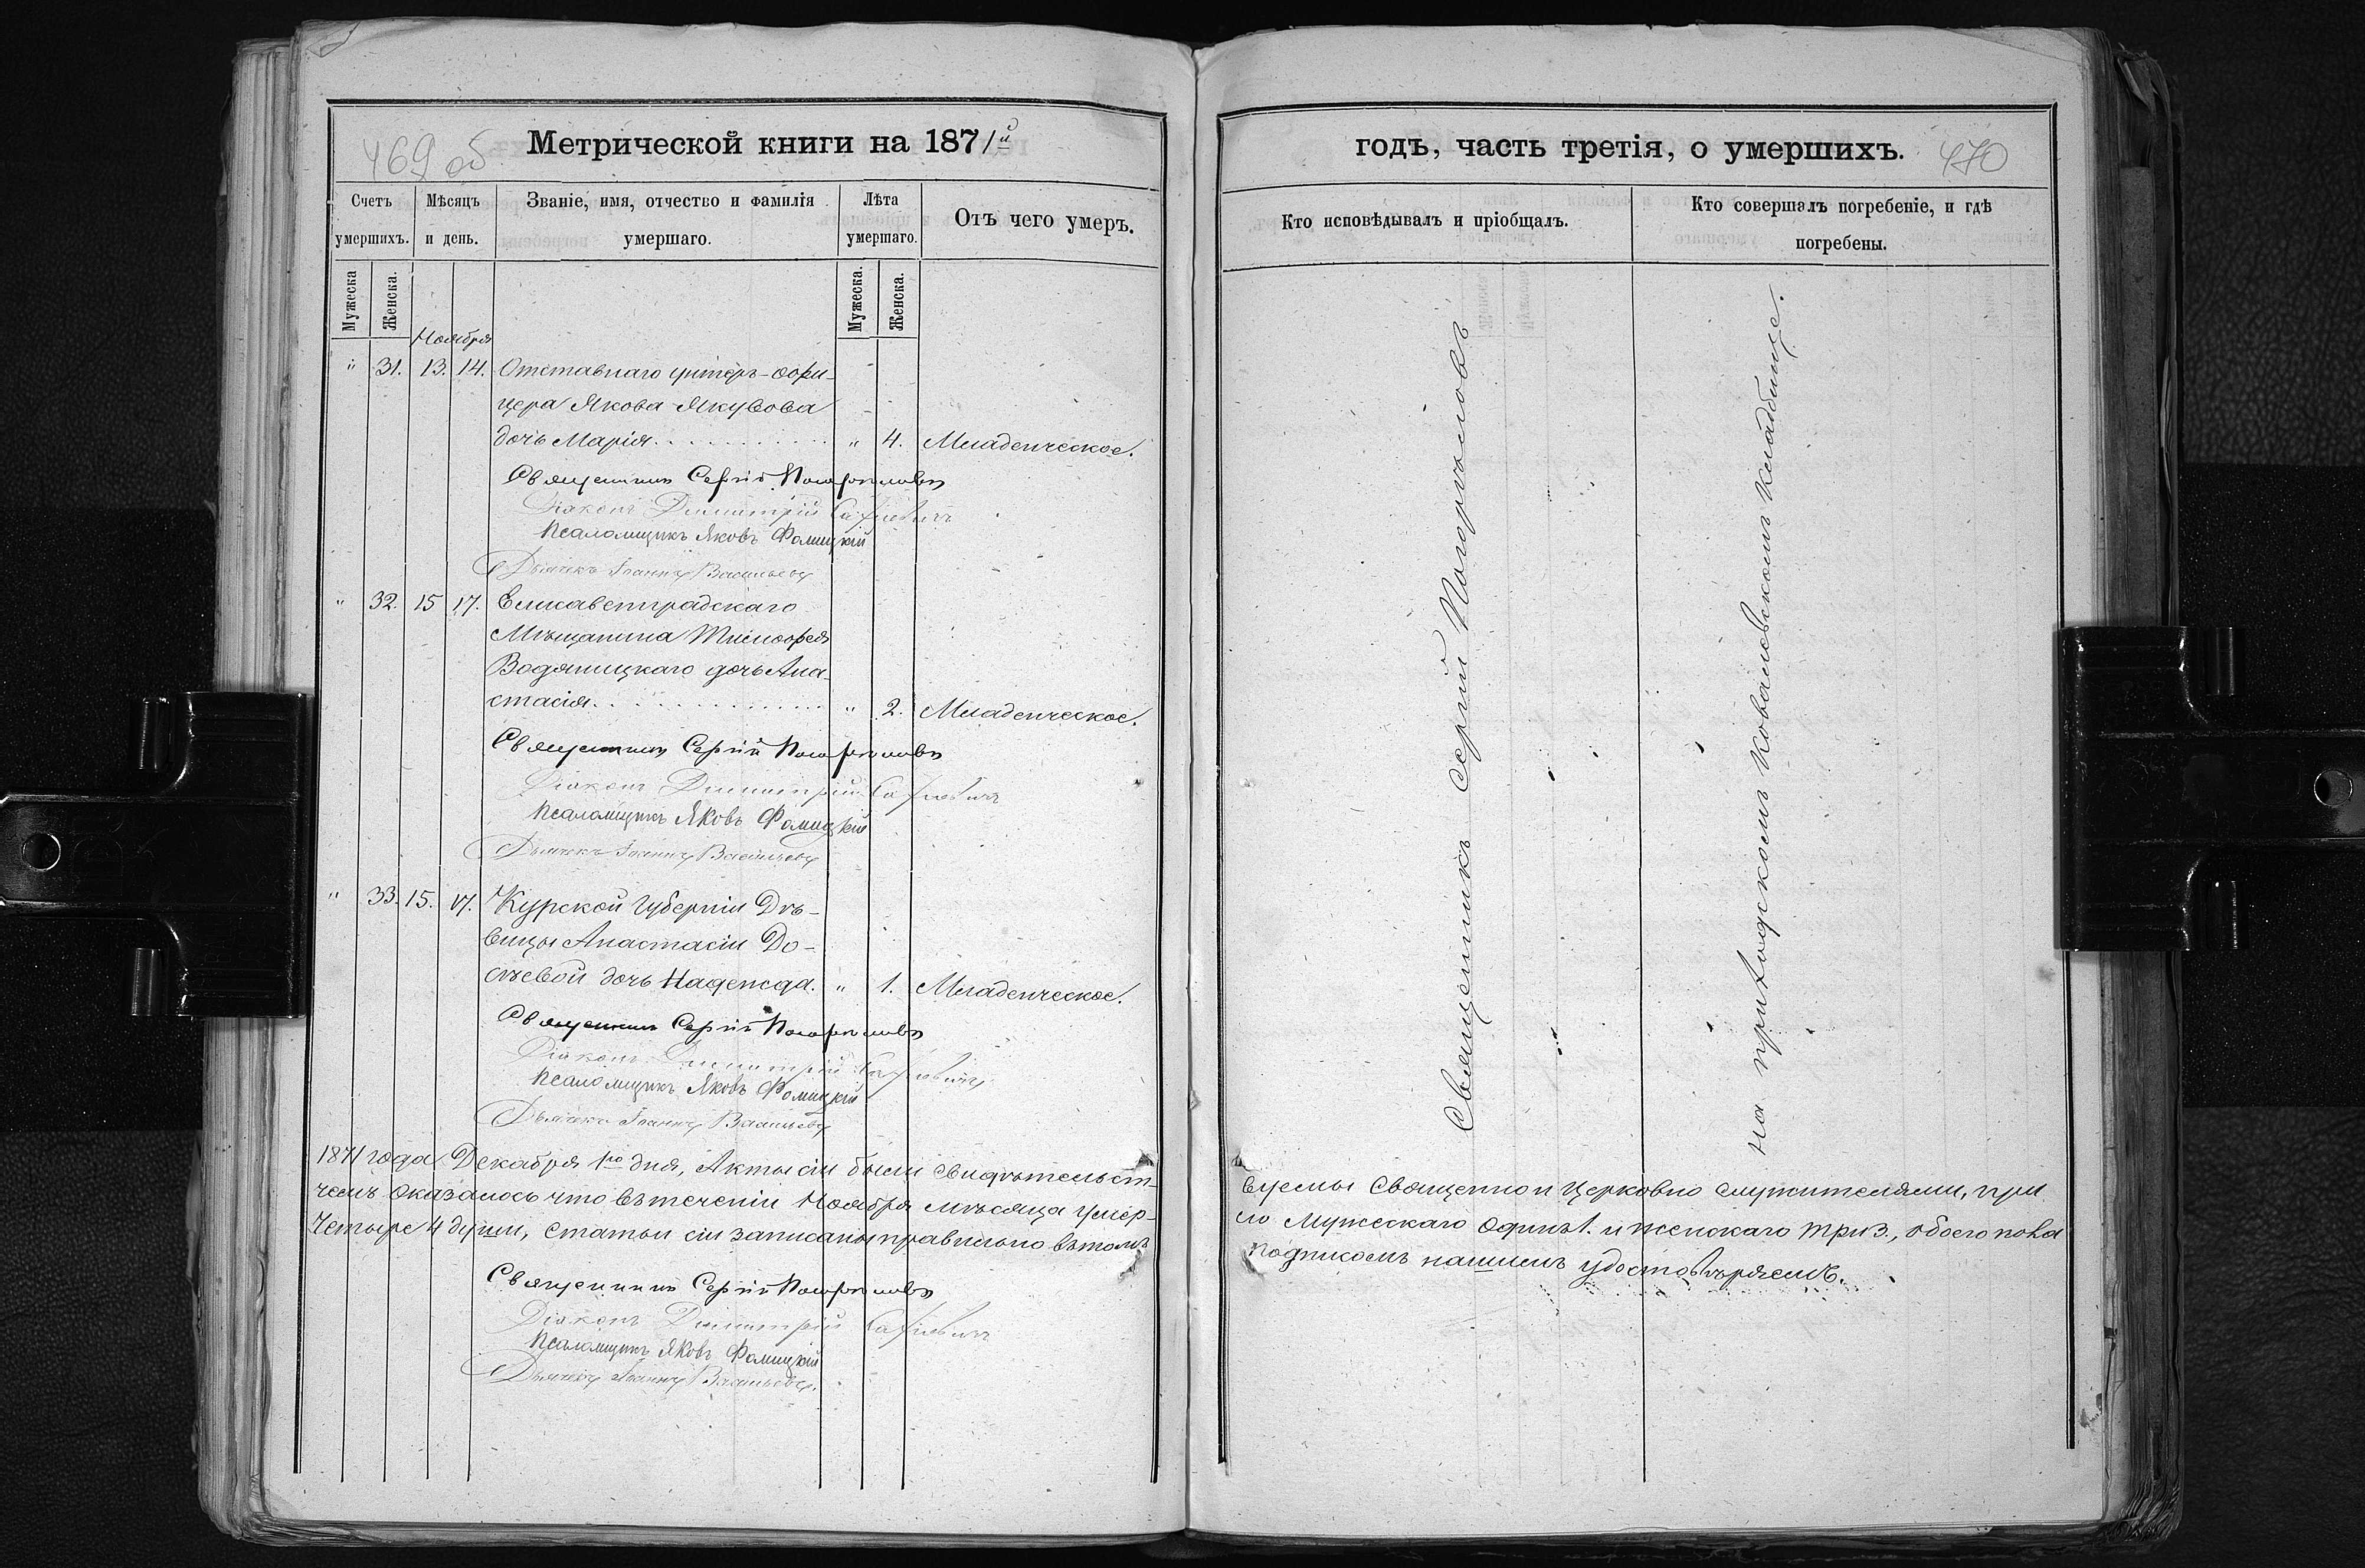 469 об
Метрической книги на 1871й
Счетъ умершихъ.
Мѣсяцъ и день.
Званіе, имя, отчество и фамилія умершаго.
Лѣта умершаго.
Отъ чего умеръ.
Мужеска
Женска.
Мужеска.
Женска.
Ноября
" 31. 13. 14. Отставнаго унтеръ-офи-
цера Якова Якубова
дочь Марія " 4. Младенческое.
Священникъ Сергій Погорѣловъ
Діаконъ Димитрій
Псаломщикъ Яковъ Фомицкій
Дьячекъ Іоаннъ Васильевъ
" 32. 15 17. Елисаветградскаго
Мѣщанина Тимофея
Водяницкаго дочь Ана-
стасія " 2. Младенческое.
Священникъ Сергій Погорѣловъ
Діаконъ Димитрій
Псаломщикъ Яковъ Фомицкій
Дьячекъ Іоаннъ Васильевъ
" 33. 15. 17. Курской Губерніи Дѣ-
вицы Анастасіи До-
лѣевой дочь Надежда. " 1. Младенческое.
Священникъ Сергій Погорѣловъ
Діаконъ Димитрій
Псаломщикъ Яковъ Фомицкій
Дьячекъ Іоаннъ Васильевъ
1871 года Декабря 1го дня, Акты сіи были свидѣтельст-
чемъ оказалось что въ теченіи Ноября мѣсяца умер-
Четыре 4 души, статьи сіи записаны правильно въ томъ
Священникъ Сергій Погорѣловъ
Діаконъ Димитрій
Псаломщикъ Яковъ Фомицкій
Дьячекъ Іоаннъ Васильевъ.
годъ, часть третія, о умершихъ.
470
Кто исповѣдывалъ и пріобщалъ.
Кто совершалъ погребеніе, и гдѣ погребены.
Священникъ Сергій Погорѣловъ
на приходскомъ Ковалевскомъ кладбище.
вуемы Священно и Церковно служителями, при
ло Мужескаго Одинъ 1. и женскаго три 3., обоего пола
подписомъ нашимъ удостовѣряемъ.